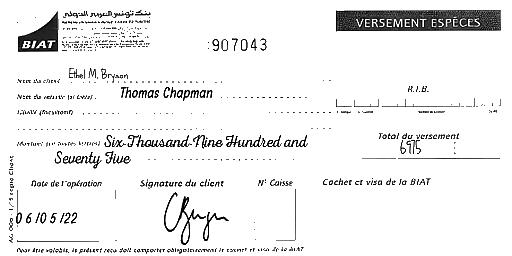 بنك تونس العربي الدولي
BIAT
VERSEMENT ESPÈCES
:907043
Nom du client Ethel M. Bryson
Nom du remettant (si tiers) Thomas Chapman
R.I.B.
Libellé (facultatif)
Montant (en toutes lettres) Six Thousand Nine Hundred and
Seventy Five
Total du versement
6975
Date de l'opération
Signature du client
N° Caisse
Cachet et visa de la BIAT
06/05/22
Pour être valable, le présent reçu doit comporter obligatoirement le cachet et visa de la BIAT